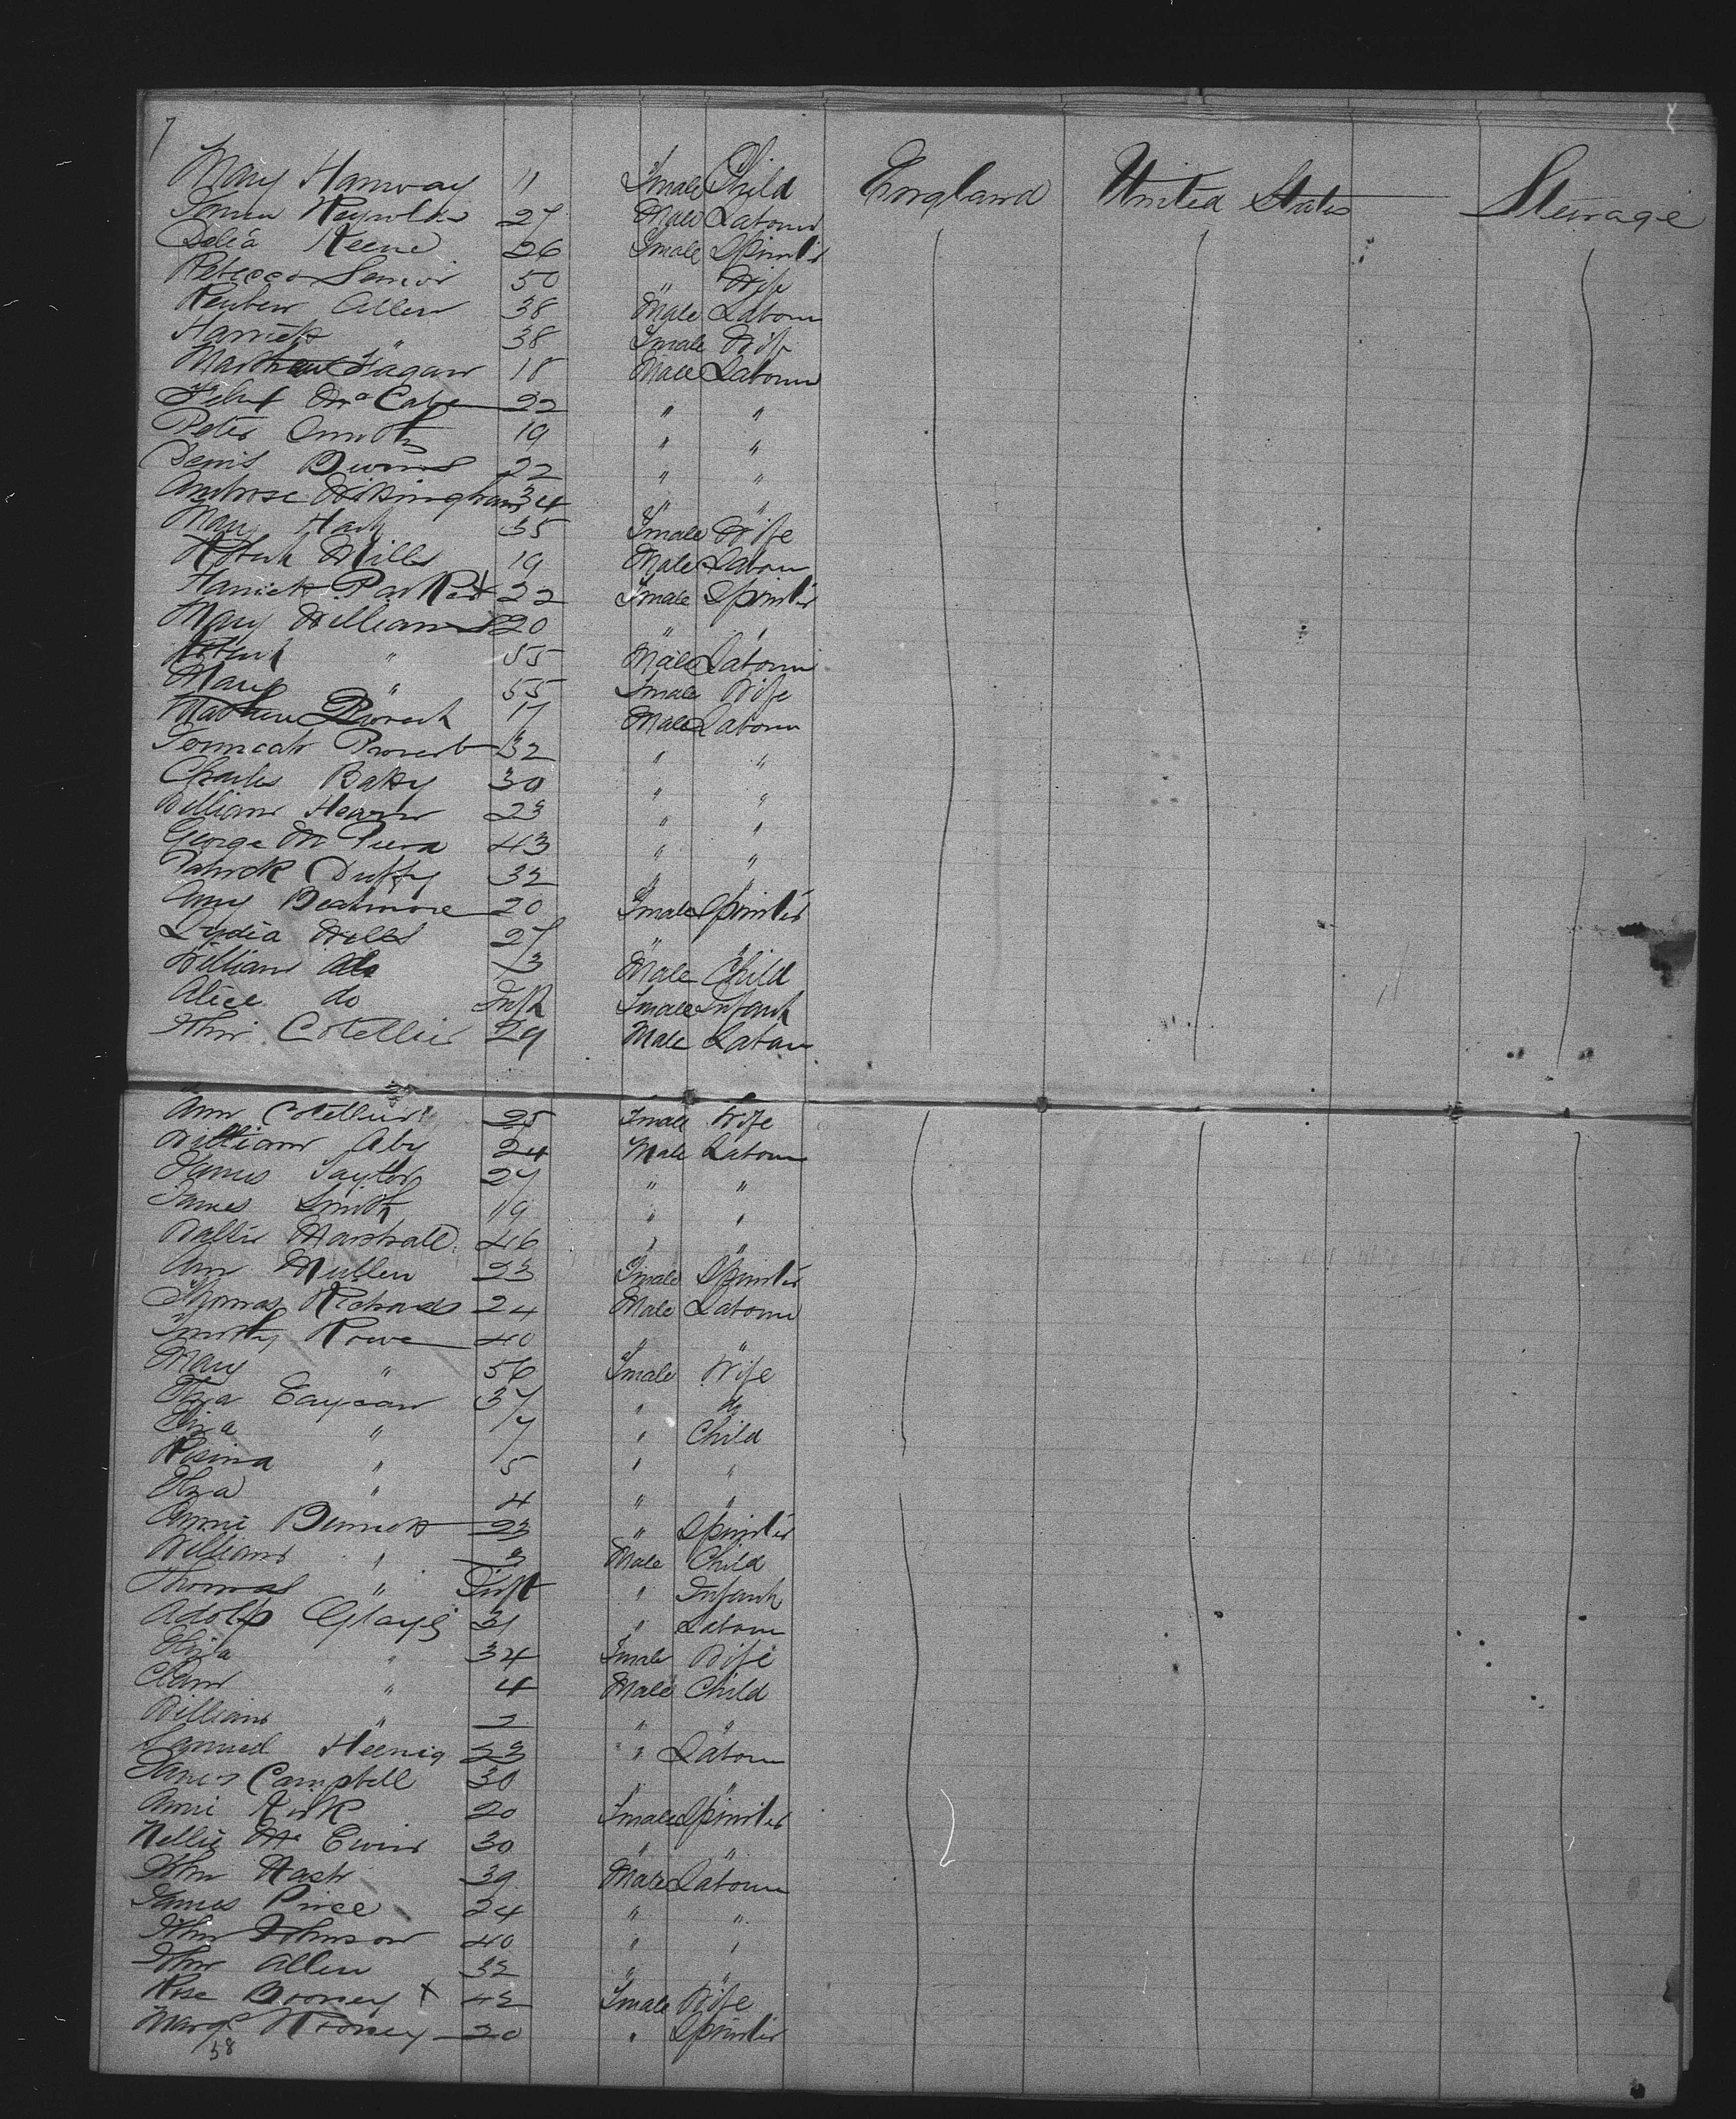 7
Mary Hanway 11 Female Child England United States Steerage
James Reynolds 27 Male Labourer
Delia Keene 26 Female Spinster
Rebecca Senior 50 " Wife
Reuben Allen 38 Male Labourer
Harriet " 38 Female Wife
Matthew Fagan 18 Male Labourer
McCabe 22 " "
Peter Smith 19 " "
Denis 22 " "
Ambrose 34 " "
Mary 35 Female Wife
Robert Mills 19 Male Labour
Harriet Parker 22 Female Spinster
Mary Williams 20 " "
Robert " 55 Male Labourer
Mary " 55 Female Wife
Matthew 17 Male Labour
32 " "
Charles 30 " "
William Hearn 23 " "
George 43 " "
Patrick Duffy 32 " "
Amy 20 Female Spinster
Lydia Wills 27 " "
William do 3 Male Child
Alice do Inft Female Infant
John Cotellier 29 Male Labour
Ann Cotellier 25 Female Wife
William Aby 24 Male Labour
James Taylor 27 " "
James Smith 19 " "
Marshall 46 " "
Ann Mullen 23 Female Spinster
Thomas Richards 24 Male Labour
Timothy Rowe 40 " "
Mary " 56 Female Wife
Eliza 37 " do
Eliza " 7 " Child
Rosina " 5 " "
" 4 " "
Annie 23 " Spinster
William " 3 Male Child
Thomas " Inft " Infant
Adolf 31 " Labour
Eliza " 34 Female Wife
" 4 Male Child
William " 2 " "
Samuel 23 " Labour
James Campbell 30 " "
Annie Kirk 20 Female Spinster
Nellie 30 " "
John Nash 39 Male Labour
James Price 24 " "
John Johnson 40 " "
John Allen 32 " "
Rose Brooney x 42 Female Wife
Margt 20 " Spinster
58